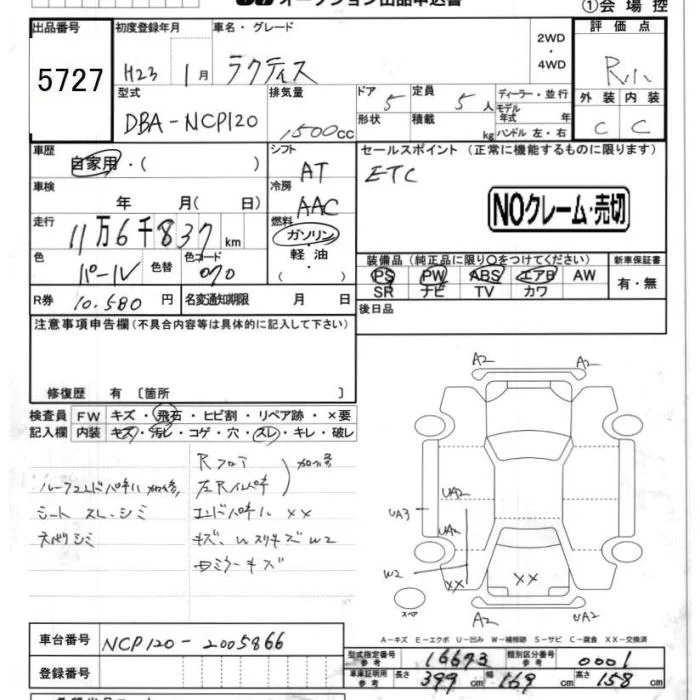 オークション出品申込書
①会場控
出品番号
5727
初度登録年月
H23 1月
車名・グレード
ラクティス
2WD
・
4WD
評価点
R
外装 内装
C C
型式
DBA-NCP120
排気量
1500cc
ドア 5
定員 5人
ディーラー・並行
モデル年式 年
ハンドル 左・右
形状
積載 kg
車歴
自家用・( )
シフト
AT
セールスポイント (正常に機能するものに限ります)
ETC
NOクレーム・売切
車検
年 月( 日)
冷房
AAC
走行
11万6千837km
燃料
ガソリン
・
軽油
・
( )
色
パール
色替
色コード
070
装備品(純正品に限り○をつけてください)
PS PW ABS エアB AW
SR ナビ TV カワ
新車保証書
有・無
R券 10.580円
名変通知期限 月 日
後日品
注意事項申告欄(不具合内容等は具体的に記入して下さい)
修復歴 有 〔箇所 〕
検査員記入欄
FW キズ・飛石・ヒビ割・リペア跡・×要
内装 キズ・汚レ・コゲ・穴・スレ・キレ・破レ
Rフロア
左Rインパネ
加修
ルーフエンドパネル加修
シート スレ・シミ
エンドパネル XX
ネバリシミ
A2 A2
UA2
UA3
UA2
W2
XX XX
スペア
A2 UA2
A-キズ E-エクボ U-凹み W-補修跡 S-サビ C-腐食 XX-交換済
車台番号
NCP120-2005866
登録番号
型式指定番号 参考 16673
類別区分番号 参考 0001
車庫証明用 参考 長さ 399cm 幅 169cm 高さ 158cm